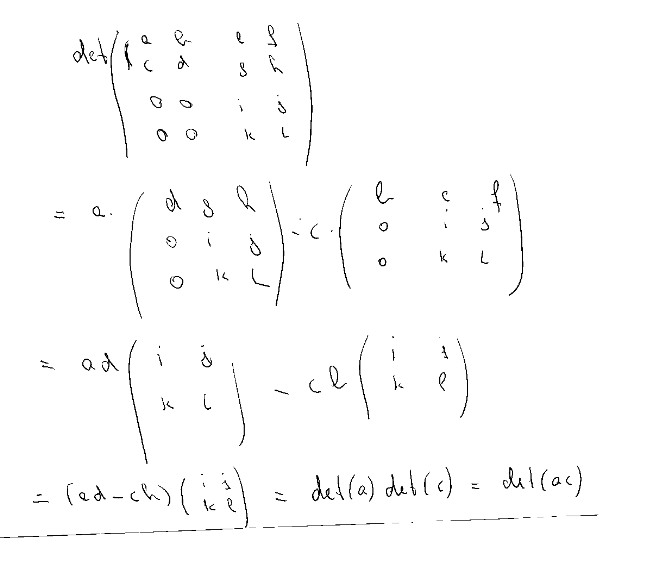 det( a b e f
c d g h
0 0 i j
0 0 k l )
= a. ( d g h
0 i j
0 k l ) - c. ( b e f
0 i j
0 k l )
= ad ( i j
k l ) - cb ( i j
k l )
= (ad-cb) ( i j
k l ) = det(a) det(c) = det(ac)